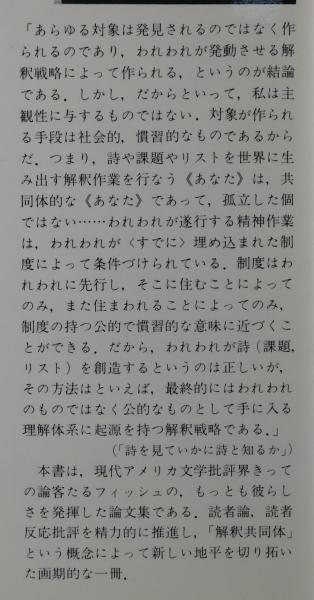 「あらゆる対象は発見されるのではなく作
られるのであり，われわれが発動させる解
釈戦略によって作られる，というのが結論
である．しかし，だからといって，私は主
観性に与するものではない．対象が作られ
る手段は社会的，慣習的なものであるから
だ．つまり，詩や課題やリストを世界に生
み出す解釈作業を行なう《あなた》は，共
同体的な《あなた》であって，孤立した個
ではない……われわれが遂行する精神作業
は，われわれが〈すでに〉埋め込まれた制
度によって条件づけられている．制度はわ
れわれに先行し，そこに住むことによって
のみ，また住まわれることによってのみ，
制度の持つ公的で慣習的な意味に近づくこ
とができる．だから，われわれが詩（課題，
リスト）を創造するというのは正しいが，
その方法はといえば，最終的にはわれわれ
のものではなく公的なものとして手に入る
理解体系に起源を持つ解釈戦略である．」
（「詩を見ていかに詩と知るか」）
本書は，現代アメリカ文学批評界きって
の論客たるフィッシュの，もっとも彼らし
さを発揮した論文集である．読者論，読者
反応批評を精力的に推進し，「解釈共同体」
という概念によって新しい地平を切り拓い
た画期的な一冊．